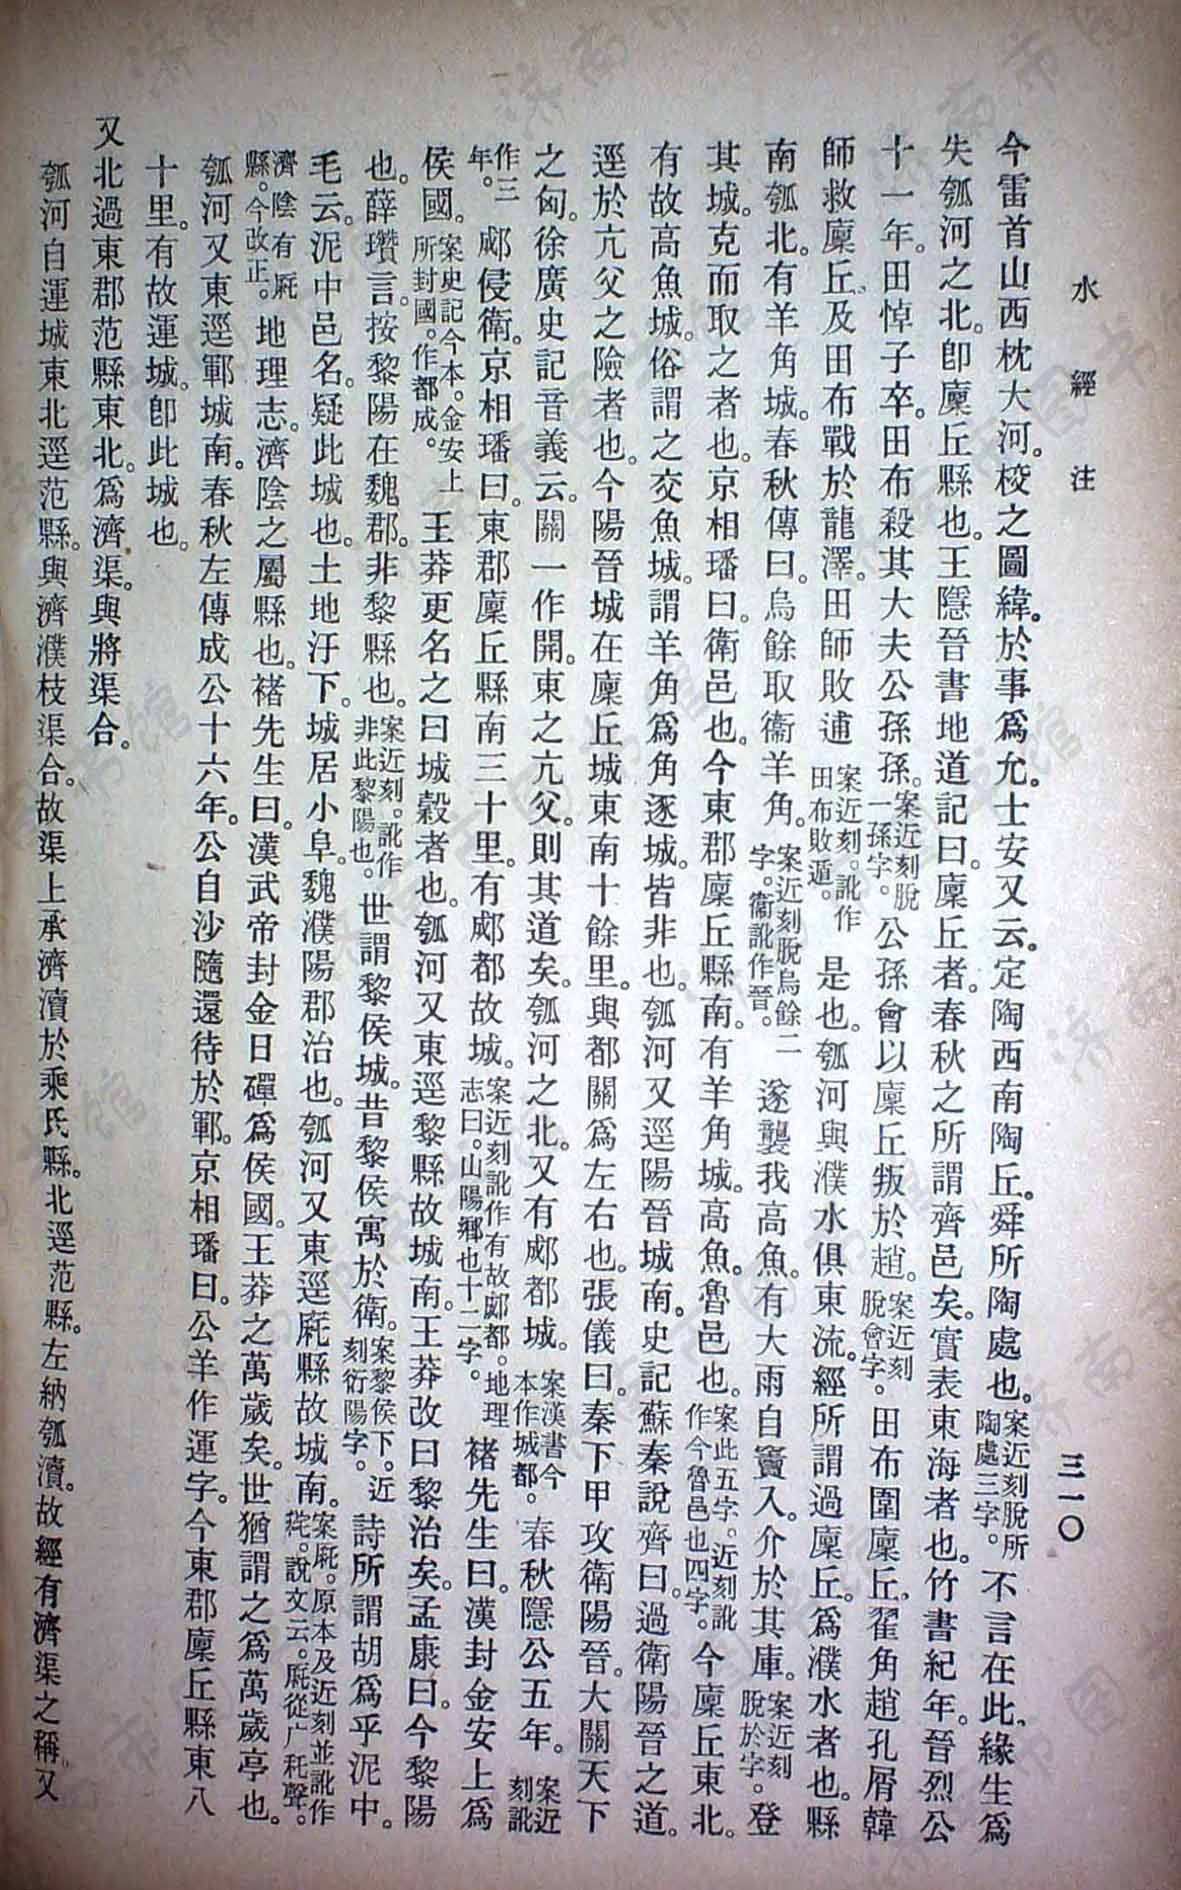 水經注
三一〇
今雷首山西枕大河。校之圖緯。於事爲允。士安又云。定陶西南陶丘。舜所陶處也。案近刻脫所陶處三字。不言在此、緣生爲
失瓠河之北。卽廩丘縣也。王隱晉書地道記曰。廩丘者。春秋之所謂齊邑矣。實表東海者也。竹書紀年。晉烈公
十一年。田悼子卒。田布殺其大夫公孫孫。案近刻脫一孫字。公孫會以廩丘叛於趙。案近刻脫會字。田布圍廩丘。翟角趙孔屑韓
師救廩丘。及田布戰於龍澤。田師敗逋案近刻。訛作田布敗遁。是也。瓠河與濮水俱東流。經所謂過廩丘。爲濮水者也。縣
南瓠北。有羊角城。春秋傳曰。烏餘取衞羊角。案近刻脫烏餘二字。衞訛作晉。遂襲我高魚。有大雨自竇入。介於其庫。案近刻脫於字。登
其城。克而取之者也。京相璠曰。衛邑也。今東郡廩丘縣南。有羊角城。高魚。魯邑也。案此五字。近刻訛作今魯邑也四字。今廩丘東北。
有故高魚城。俗謂之交魚城。謂羊角爲角逐城。皆非也。瓠河又逕陽晉城南。史記蘇秦說齊曰。過衛陽晉之道。
逕於亢父之險者也。今陽晉城在廩丘城東南十餘里。與都關爲左右也。張儀曰。秦下甲攻衛陽晉。大關天下
之匈。徐廣史記音義云。關一作開。東之亢父。則其道矣。瓠河之北。又有郕都城。案漢書今本作城都。春秋隱公五年。案近刻訛
作三年。郕侵衛。京相璠曰。東郡廩丘縣南三十里。有郕都故城。案近刻訛作有故郕都。地理志曰。山陽鄉也十二字。褚先生曰。漢封金安上爲
侯國。案史記今本。金安上所封國。作都成。王莽更名之曰城穀者也。瓠河又東逕黎縣故城南。王莽改曰黎治矣。孟康曰。今黎陽
也。薛瓚言。按黎陽在魏郡。非黎縣也。案近刻。訛作非此黎陽也。世謂黎侯城。昔黎侯寓於衛。案黎侯下。近刻衍陽字。詩所謂胡爲乎泥中。
毛云。泥中邑名。疑此城也。土地汙下。城居小阜。魏濮陽郡治也。瓠河又東逕庛縣故城南。案庛。原本及近刻並訛作秺。說文云。庛從广秅聲。
濟陰有庛縣。今改正。地理志。濟陰之屬縣也。褚先生曰。漢武帝封金日磾爲侯國。王莽之萬歲矣。世猶謂之爲萬歲亭也。
瓠河又東逕鄆城南。春秋左傳成公十六年。公自沙隨還待於鄆。京相璠曰。公羊作運字。今東郡廩丘縣東八
十里。有故運城。卽此城也。
又北過東郡范縣東北。爲濟渠。與將渠合。
瓠河自運城東北逕范縣。與濟濮枝渠合。故渠上承濟瀆於乘氏縣。北逕范縣。左納瓠瀆。故經有濟渠之稱。又